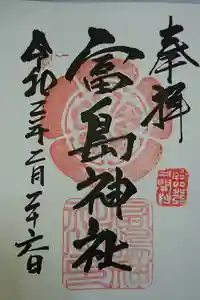 奉拝
富島神社
令和三年二月二十六日